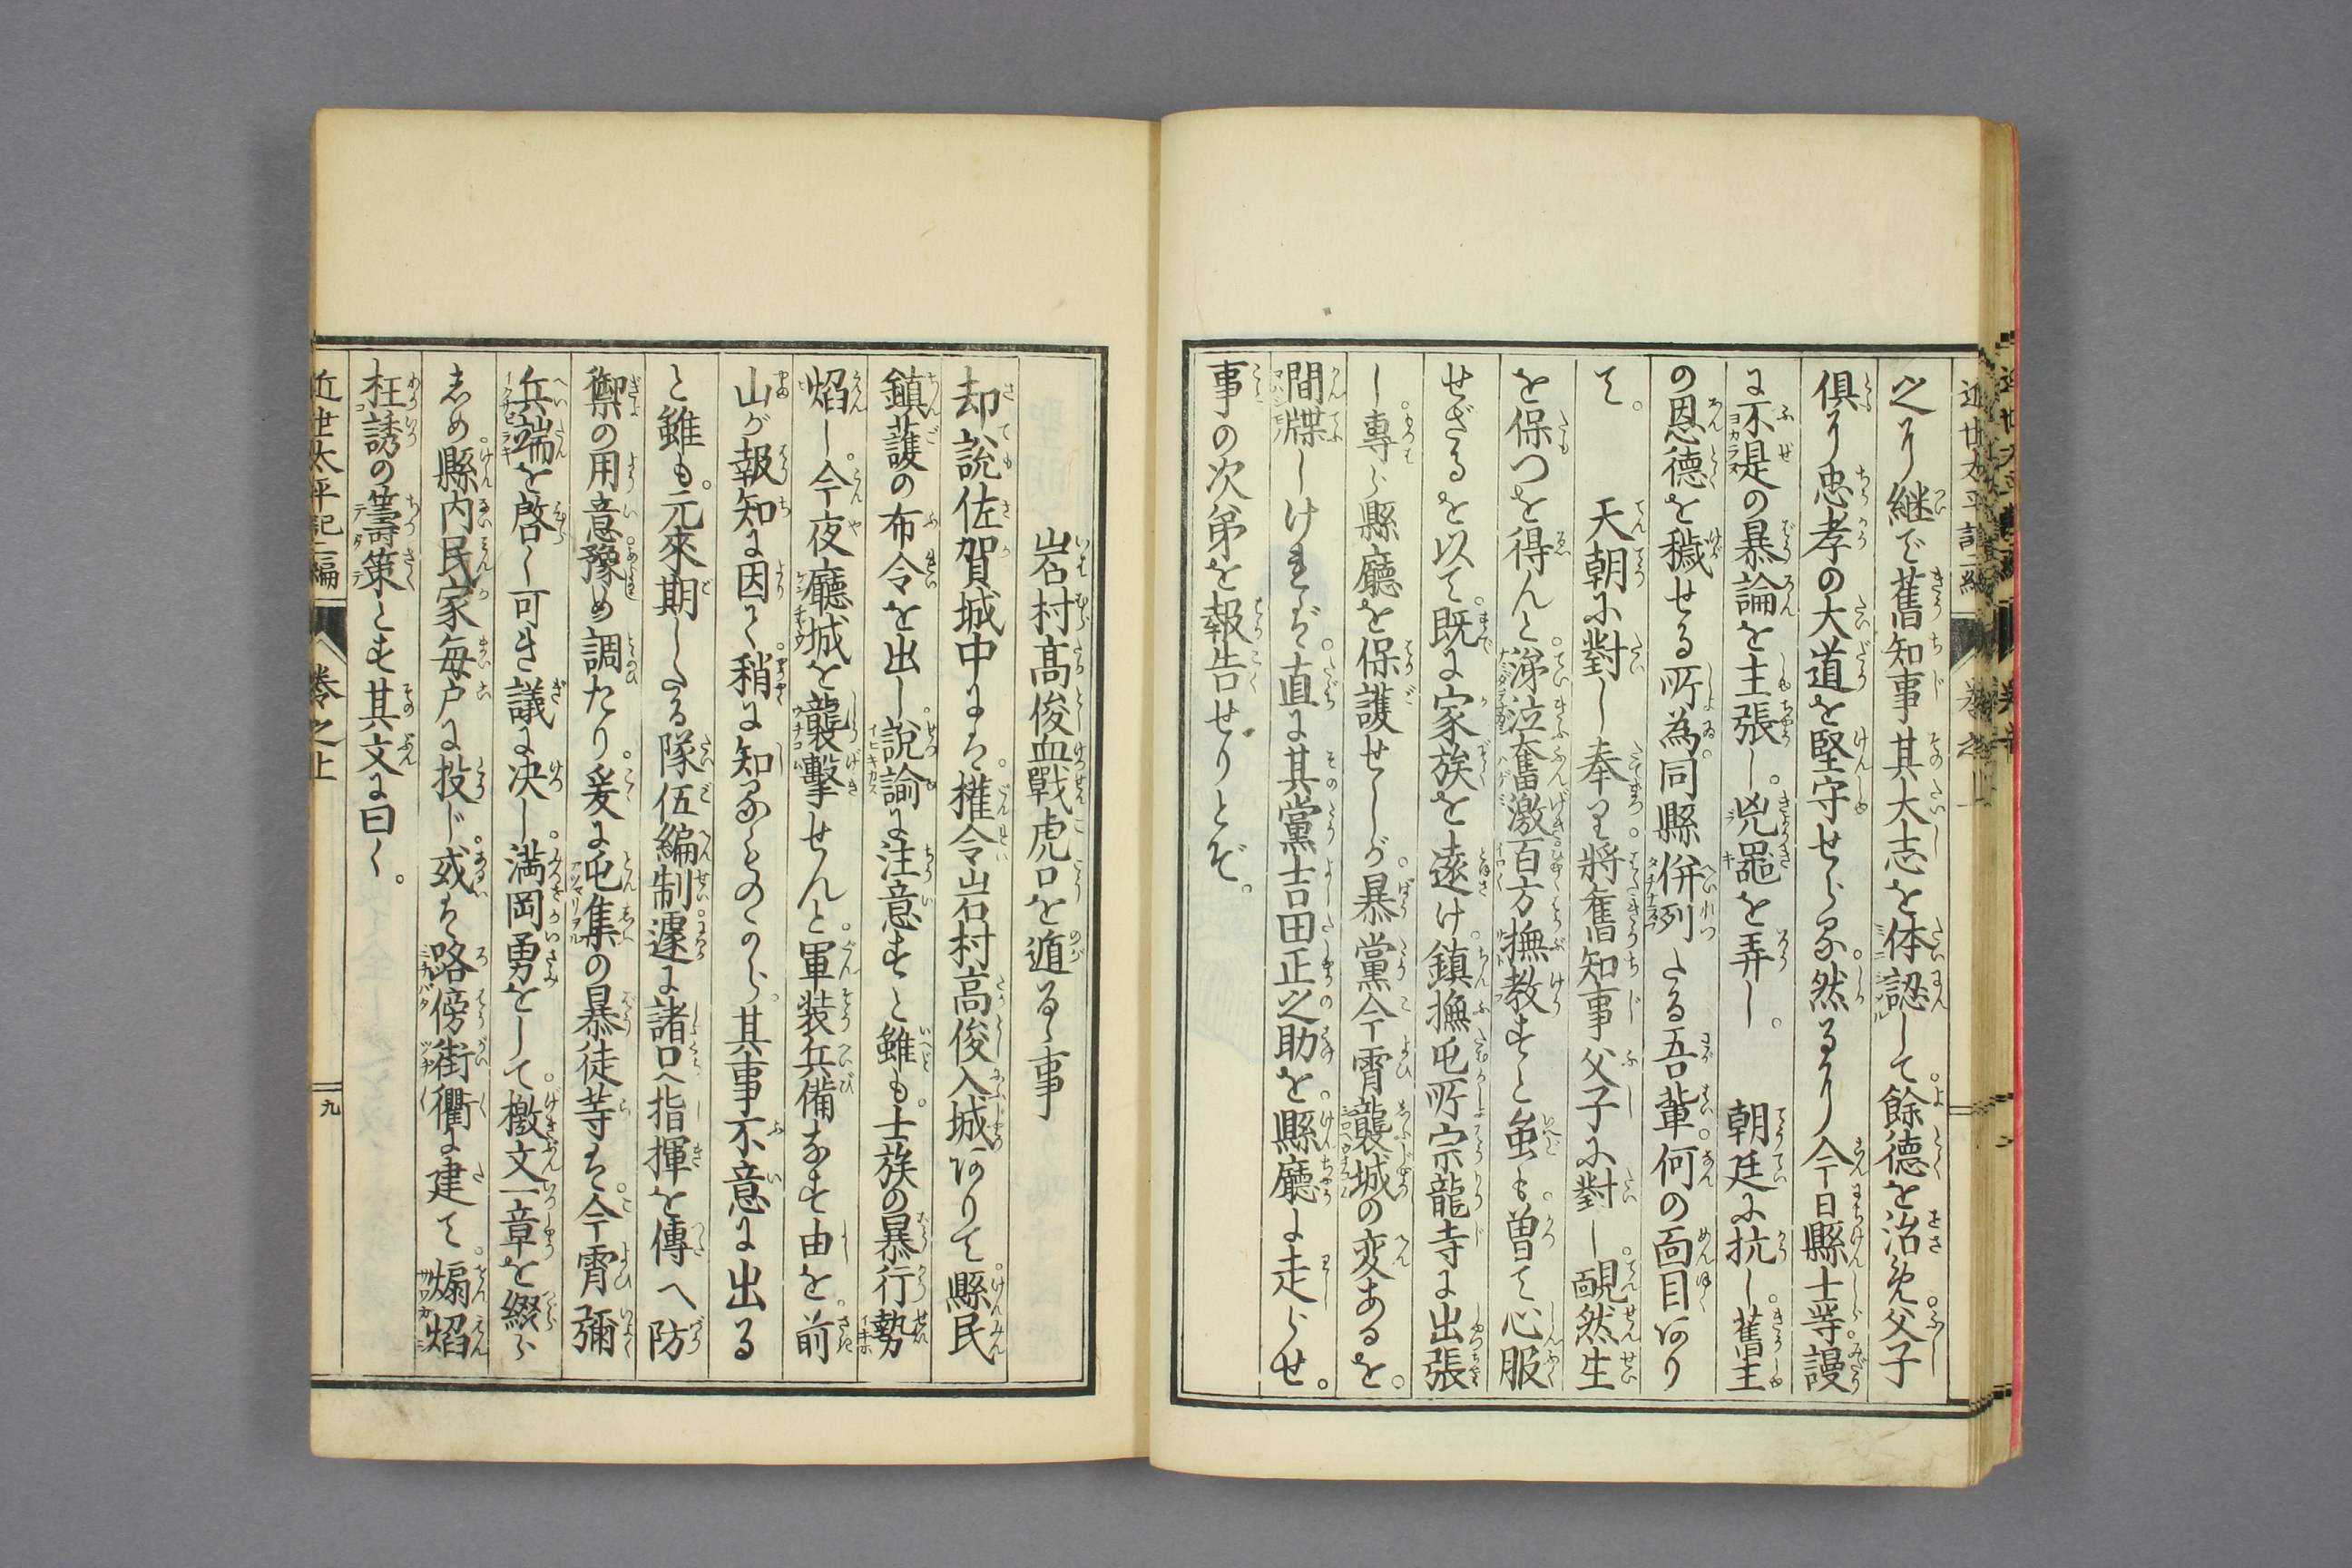 之に継で舊知事其大志を体認して。餘徳を治め。父子
倶に忠孝の大道を堅守せらる。然るに今日縣士等。謾
に不是の暴論を主張し。兇噐を弄し。朝廷に抗し。舊主
の恩徳を穢せる所為。同縣併列たる吾輩。何の面目ありて。
天朝に對し奉り。將舊知事父子に對し。靦然生
を保つを得んと。涕泣奮激。百方撫教すと𧈧も。曽て心服
せざるを以て。既に家族を遠け。鎮撫屯所宗龍寺に出張
し。專ら縣廳を保護せしが。暴黨今宵襲城の変あるを。
間牒しければ。直に其黨士吉田正之助を。縣廳に走らせ。
事の次第を報告せりとぞ。
岩村髙俊血戰虎口を遁るゝ事
却説佐賀城中には。権令岩村高俊入城ありて。縣民
鎮護の布令を出し。説諭に注意すと雖も。士族の暴行勢
焰し。今夜廳城を襲擊せんと。軍装兵備なす由を。前
山が報知に因て。稍に知るものから。其事不意に出る
と雖も。元來期したる隊伍編制。遽に諸口へ指揮を傳へ防
禦の用意。豫め調たり。爰に屯集の暴徒等は。今宵彌
兵端を啓く可き議に决し。満岡勇をして。檄文一章を綴ら
しめ。縣内民家毎戸に投じ。或は路傍街衢に建て。煽焰
枉誘の籌策とす其文に曰く。
近世太平記二編 巻之上 九